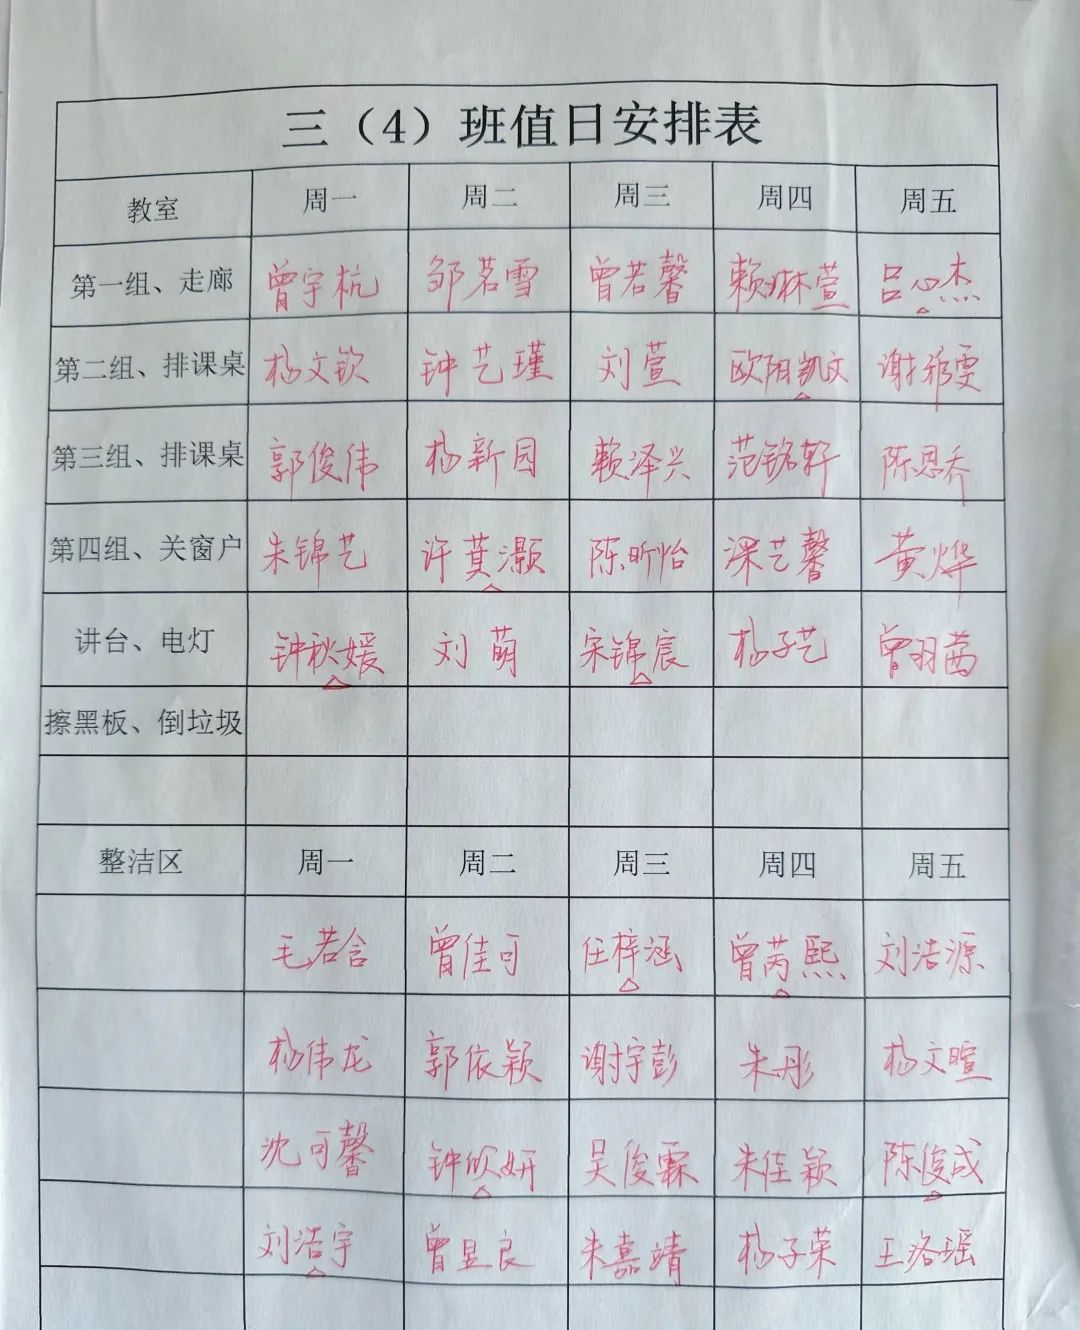 三（4）班值日安排表
教室 周一 周二 周三 周四 周五
第一组、走廊 曾宇杭 邹茗雪 曾若馨 赖琳萱 吕心杰
第二组、排课桌 杨文钦 钟艺瑾 刘萱 欧阳凯文 谢雯
第三组、排课桌 郭俊伟 杨新园 赖泽兴 范铭轩 陈恩乔
第四组、关窗户 朱锦艺 许莫灏 陈昕怡 梁艺馨 黄烨
讲台、电灯 钟秋媛 刘萌 宋锦宸 杨子艺 曾羽茜
擦黑板、倒垃圾
整洁区 周一 周二 周三 周四 周五
毛若含 曾佳可 任梓涵 曾芮熙 刘浩源
杨伟龙 郭依颖 谢宇彭 朱彤 杨文暄
沈可馨 钟欣妍 吴俊霖 朱佳颖 陈俊成
刘浩宇 曾昱良 朱嘉靖 杨子荣 王洛瑶